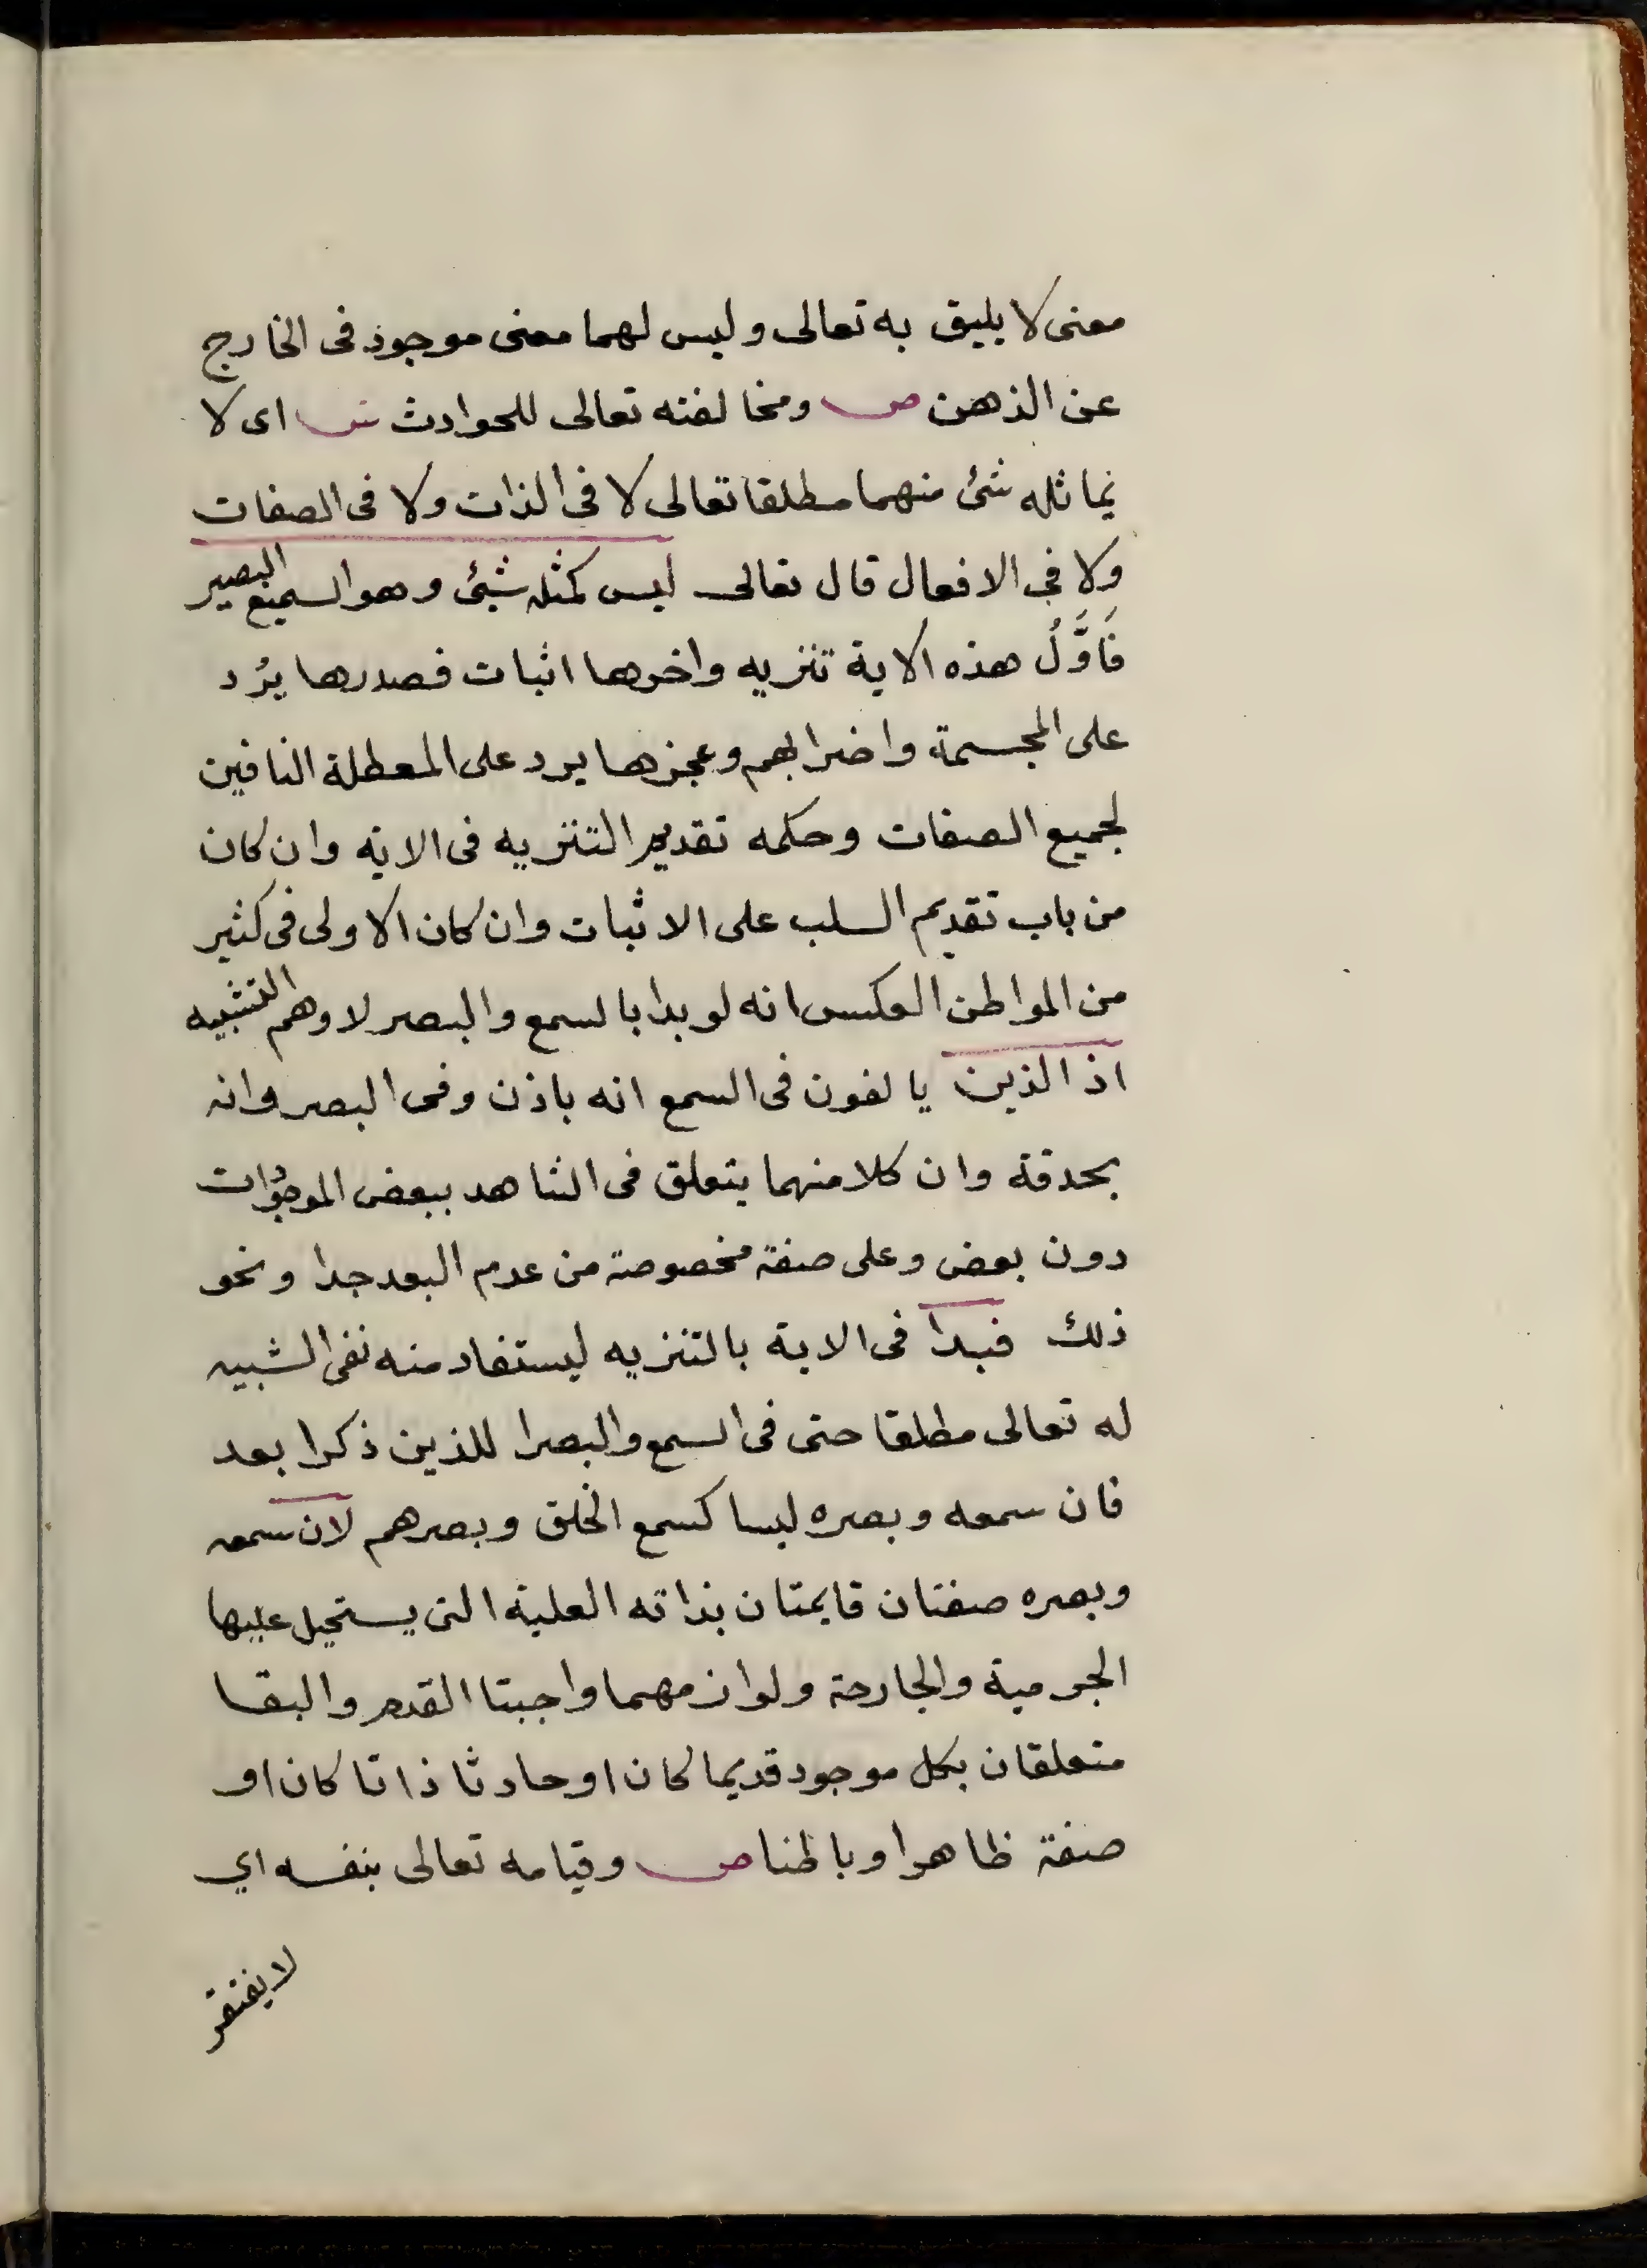 معنى لا يليق به تعالى وليس لهما معنى موجود فى الخارج
عن الذهن ص ومخالفته تعالى للحوادث ش اى لا
يماثله شئ منهما مطلقا تعالى لا فى الذات ولا فى الصفات
ولا فى الافعال قال تعالى ليس كمثله شيئ وهو السميع البصير
فَاَوَّلُ هذه الاية تنزيه واخرها اثبات فصدرها يرُد
على المجسمة واضرابهم وعجزها يرد على المعطلة النافين
لجميع الصفات وحكمه تقديم التنزيه فى الايه وان كان
من باب تقديم السلب على الاثبات وان كان الاولى فى كثير
من المواطن العكس انه لو بدا بالسمع والبصر لاوهم التشبيه
اذ الذين يالفون فى السمع انه باذن وفى البصر وانه
بحدقة وان كلا منهما يتعلق فى الشاهد ببعض الموجودات
دون بعض وعلى صفة مخصوصة من عدم البعد جدا ونحو
ذلك فبدا فى الاية بالتنزيه ليستفاد منه نفى الشبيه
له تعالى مطلقا حتى فى السمع والبصرا للذين ذكرا بعد
فان سمعه وبصره ليسا كسمع الخلق وبصرهم لان سمعه
وبصره صفتان قايمتان بذاته العلية التى يستحيل عليها
الجرمية والجارحة ولوازمهما واجبتا القدم والبقا
متعلقان بكل موجود قديما كان او حادثا ذاتا كان او
صفة ظاهرا وباطنا ص وقيامه تعالى بنفسه اي
لا يفتقر